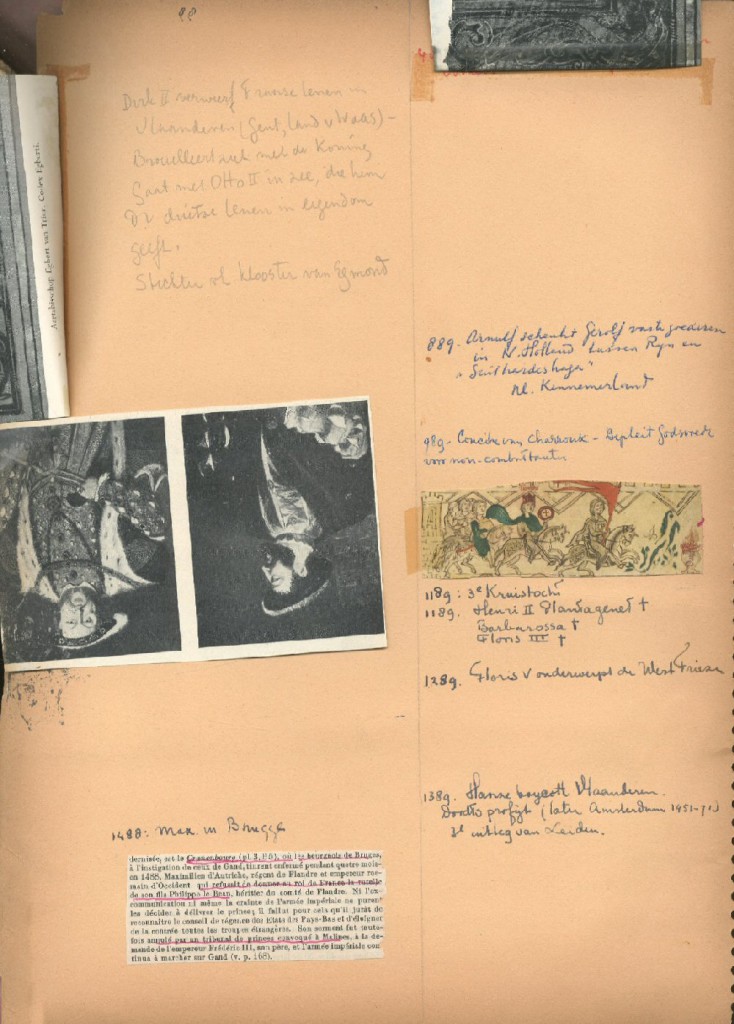 88
Dirk II verwerft Franse lenen in
Vlaanderen (Gent, Land v Waas) -
Brouilleert zich met de Koning
Gaat met Otto II in zee, die hem
Duitse lenen in eigendom
geeft.
Stichter vh Klooster van Egmond
Aartsbisschop Egbert van Trier. Codex Egberti.
889. Arnulf schenkt Gerolf vaste goederen
in N. Holland tussen Ryn en
"Suithardeshaga"
nl. Kennemerland
989. Concilie van Charroux - Bepleit Godsvrede
voor non-combattanten
1189: 3e Kruistocht
1189. Henri II Plantagenet †
Barbarossa †
Floris III †
1289. Floris V onderwerpt de West Friezen
1389. Hanze boycott Vlaanderen.
profijt (later Amsterdam
van Leiden.
1488: Max. in Brugge
dernisée, est le Cranenbourg (pl. 3, B5), où les bourgeois de Bruges,
à l'instigation de ceux de Gand, tinrent enfermé pendant quatre mois
en 1488, Maximilien d'Autriche, régent de Flandre et empereur ro-
main d'Occident, qui refusait de donner au roi de France la tutelle
de son fils Philippe le Beau, héritier du comté de Flandre. Ni l'ex-
communication ni même la crainte de l'armée impériale ne purent
les décider à délivrer le prince; il fallut pour cela qu'il jurât de
reconnaître le conseil de régence des Etats des Pays-Bas et d'éloigner
de la contrée toutes les troupes étrangères. Son serment fut toute-
fois annulé par un tribunal de princes convoqué à Malines, à la de-
mande de l'empereur Frédéric III, son père, et l'armée impériale con-
tinua à marcher sur Gand (v. p. 168).